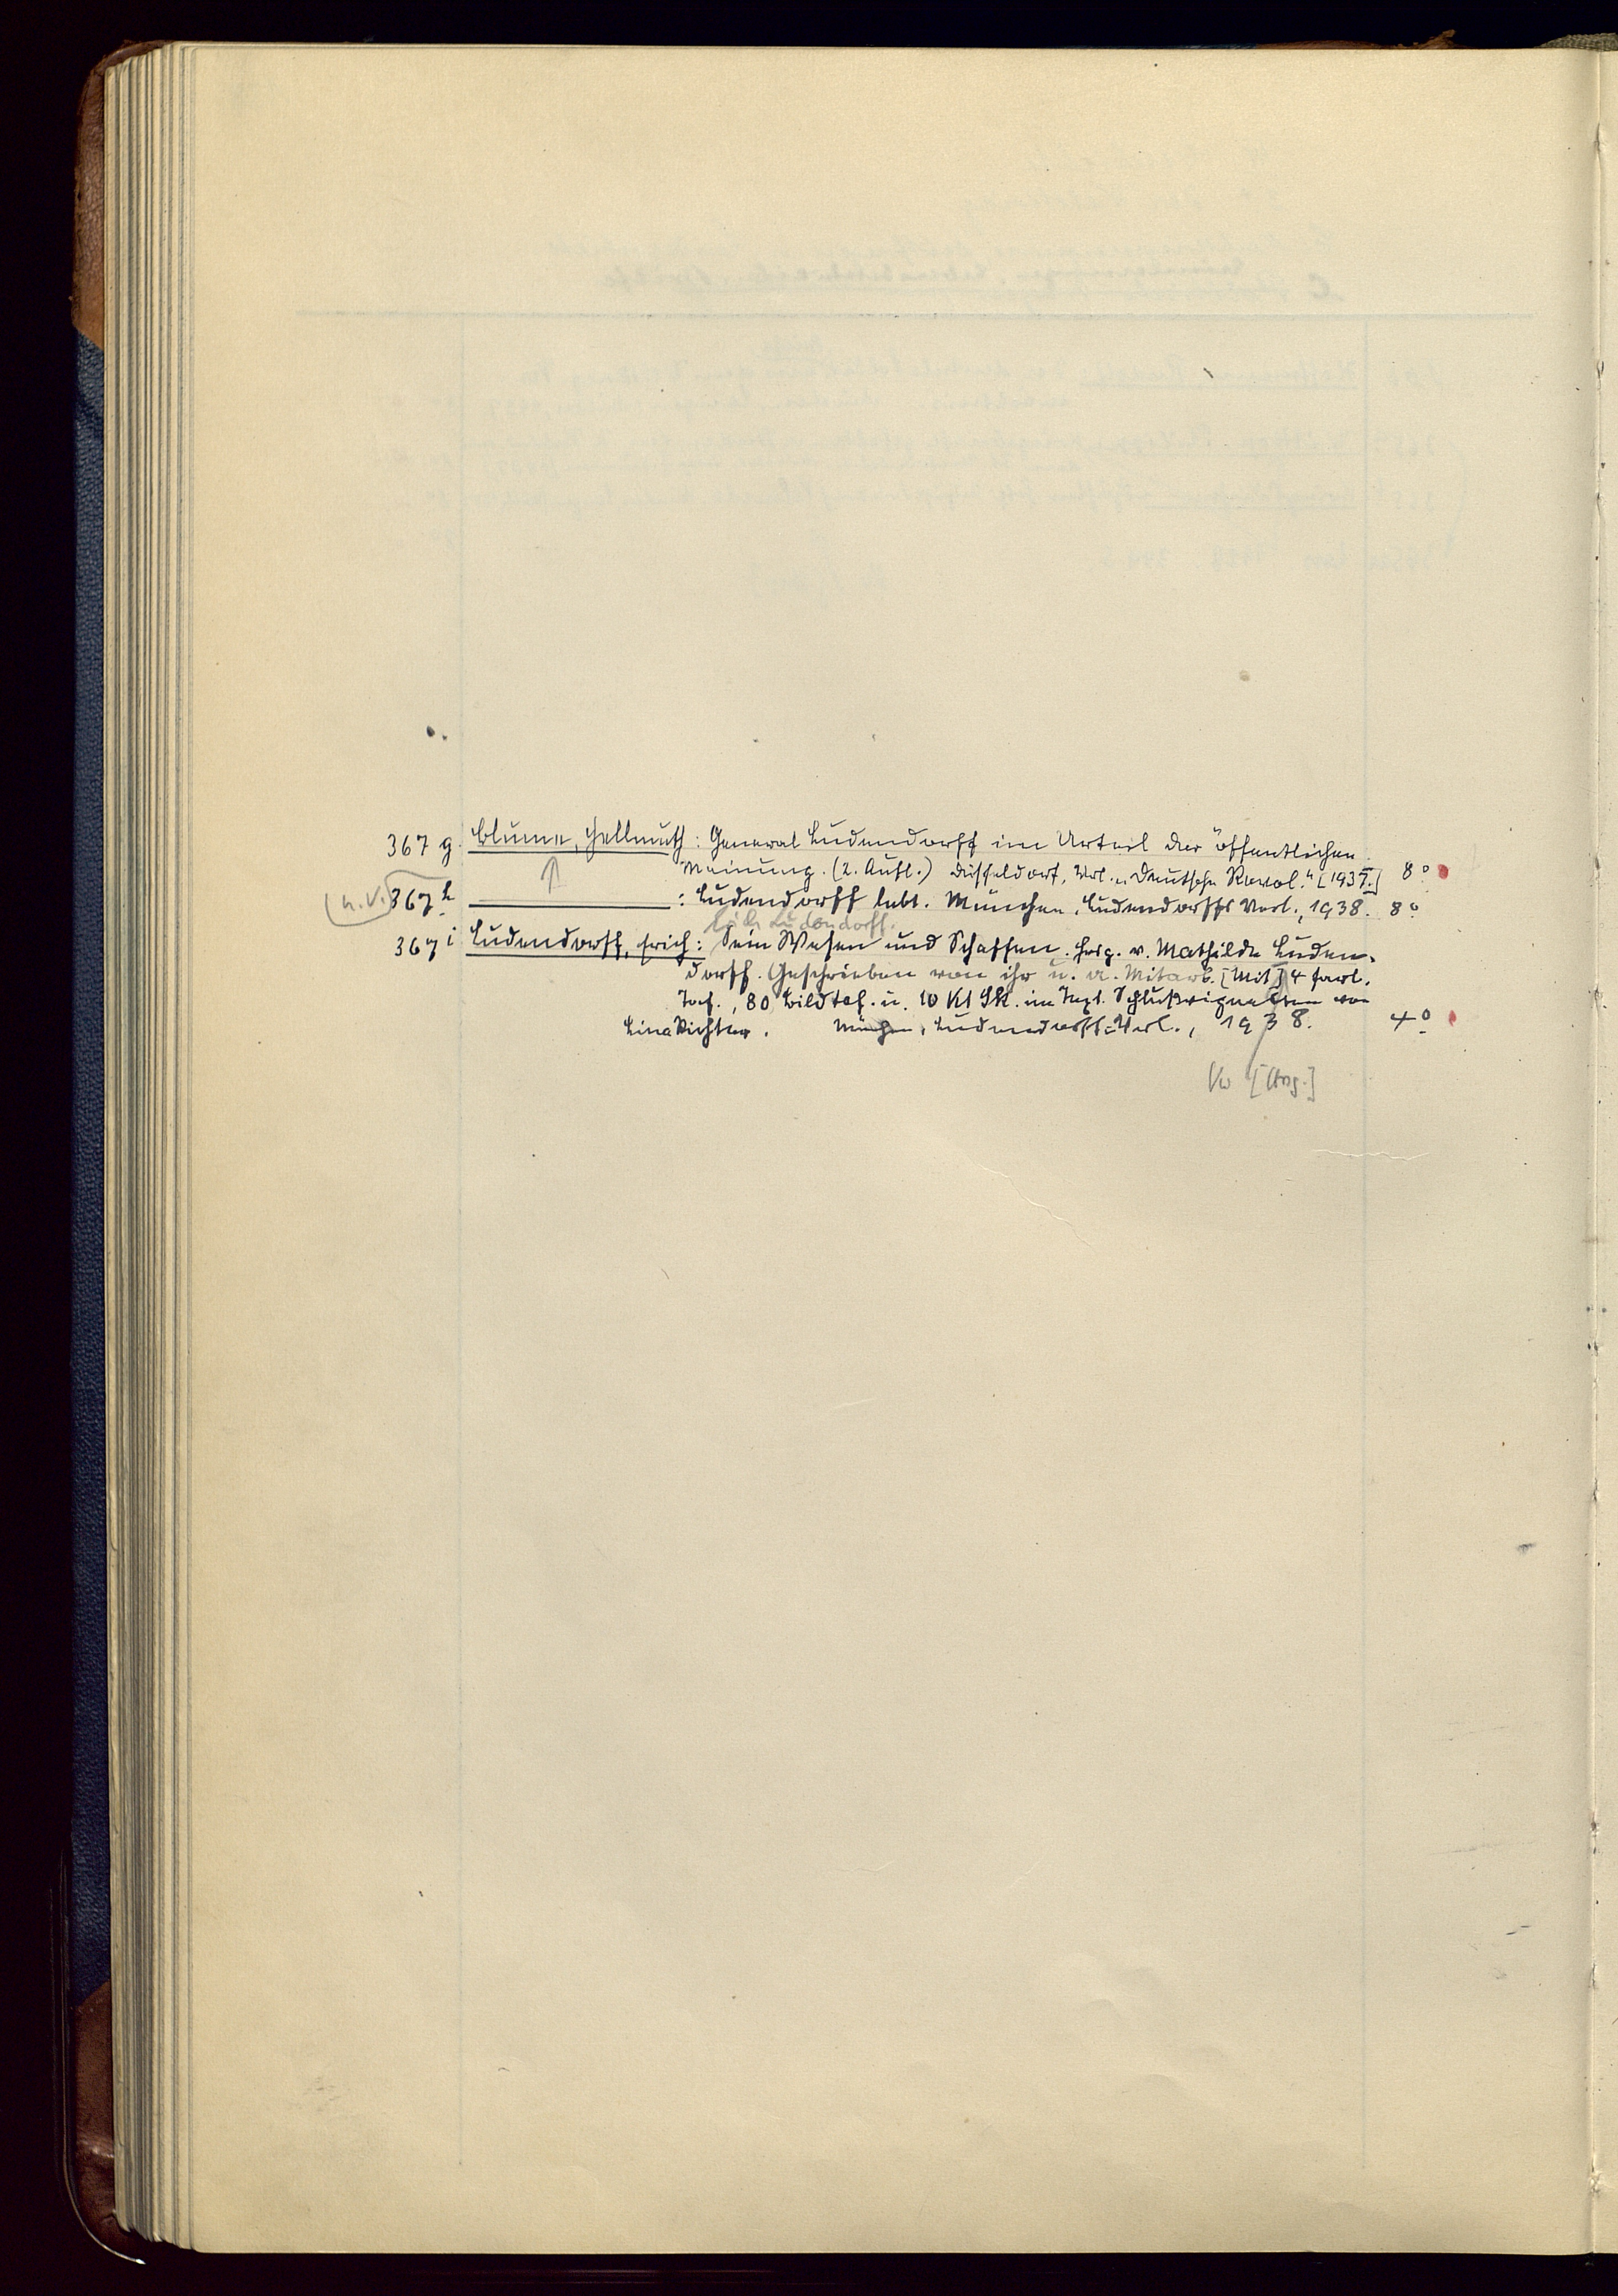 367 g. Blume, Hellmuth: General Ludendorff im Urteil der öffentlichen
Meinung. (2. Aufl.) Düsseldorf, Verl. „Deutsche Revol." [1937.] 8°
(n.V.) 367 h. ———: Ludendorff lebt. München, Ludendorffs Verl., 1938. 8°
Erich Ludendorff.
367 i Ludendorff, Erich: Sein Wesen und Schaffen. Hrsg. v. Mathilde Luden-
dorff. Geschrieben von ihr u. a. Mitarb. [Mit] 4 farb.
Taf., 80 Bildtaf. u. 10 Kt Sk. im Text. Schlußvignetten von
Lina Richter. München, Ludendorffs Verl., 1938. 4°
[Hrsg.]